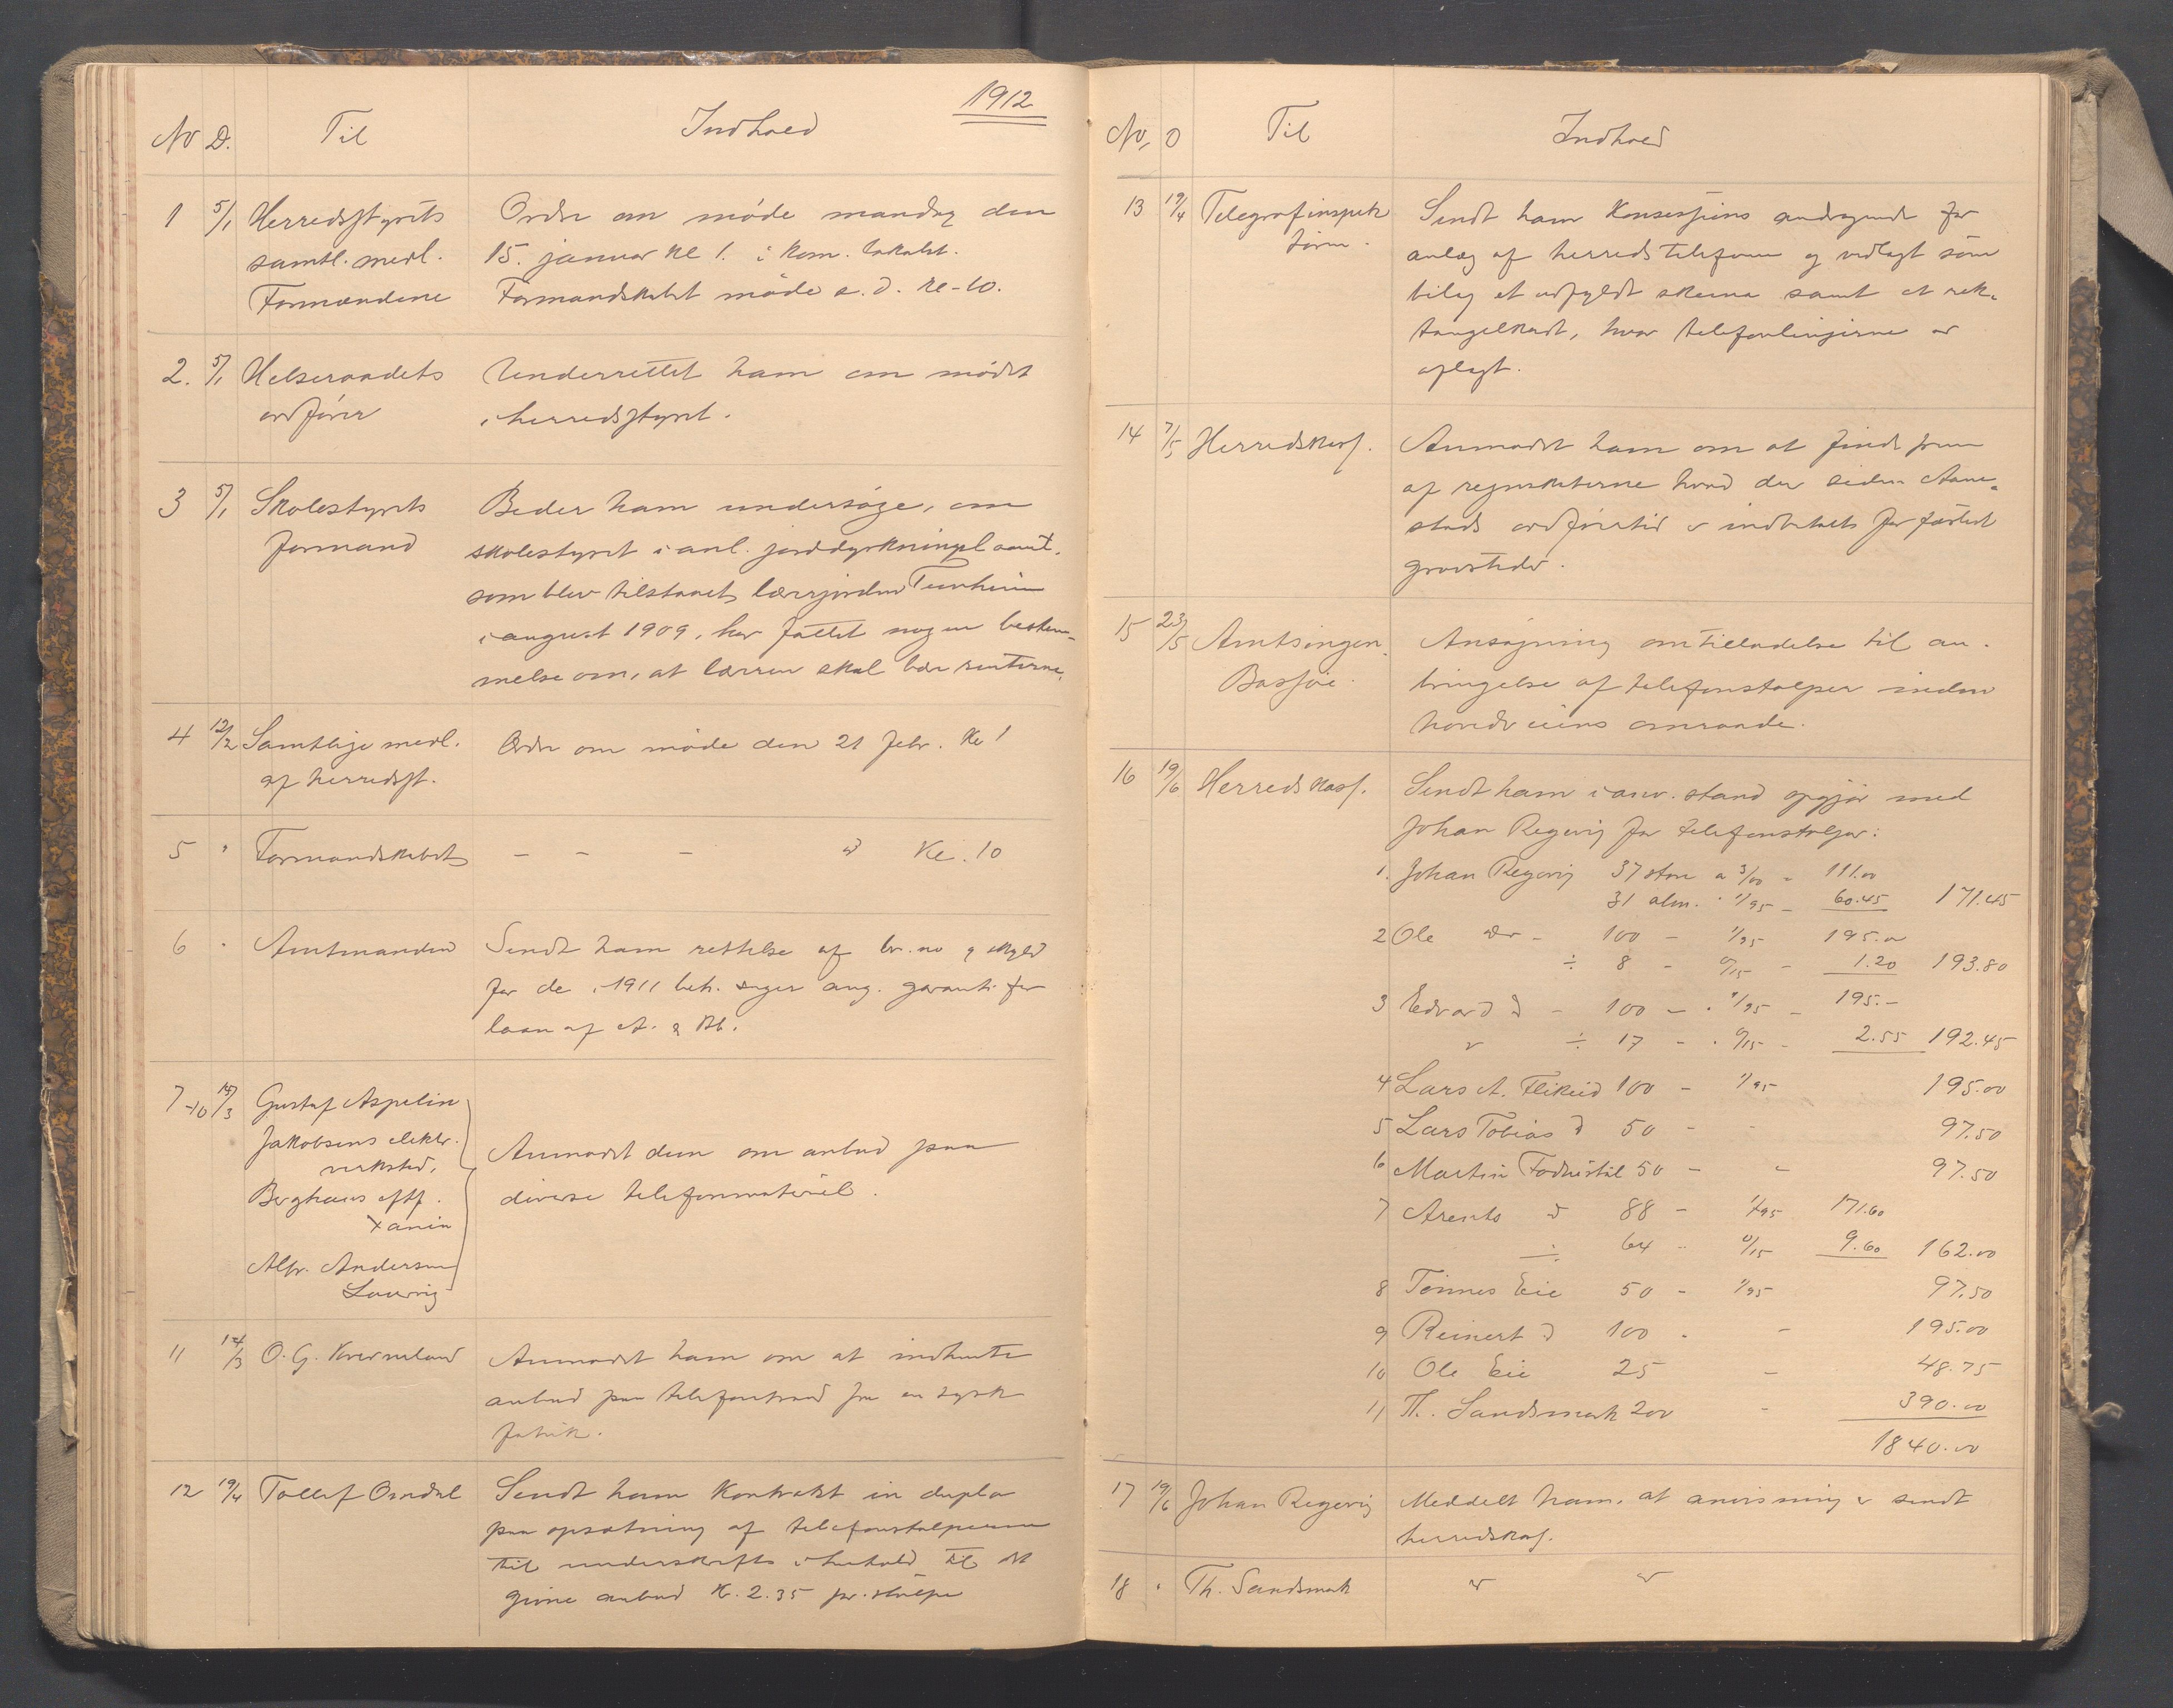 1912
No D. Til Indhold
1 5/1 Herredsstyrets Ordre om møde mandag den
samtl. medl. 15. januar kl 1. i kom. lokalet.
Formændene Formandskabet møde s. d. kl - 10.
2. 5/1 Helseraadets Underrettet ham om mødet
ordfører i herredsstyret.
3 5/1 Skolestyrets Beder ham undersøge, om
formand skolestyret i anl. jorddyrkningslaanet,
som blev tilstaaet lærerjorden Tunheim
i august 1909, har fattet nogen bestem-
melse om, at læreren skal bære renterne.
4 12/2 Samtlige medl. Ordre om møde den 21 febr. kl 1
af herredsst.
5 " Formandskabet - - - " kl. 10
6 " Amtmanden Sendt ham rettelse af br. no og skyld
for de i 1911 beh. sager ang. garanti for
laan af A. & Bb.
7-10 14/3 Gustaf Aspelin
Jakobsens elektr.
verksted, Anmodet dem om anbud paa
Berghaus eftf. diverse telefonmateriel.
Alfr. Andersen
Laurvig
11 14/3 O. G. Kverneland Anmodet ham om at indhente
anbud paa telefontraad fra en tysk
fabrik.
12 19/4 Tollef Omdal Sendt ham kontrakt in duplo
paa opsætning af telefonstolperne
til underskrift i henhold til det
givne anbud kr. 2.35 pr. stolpe
No. D Til Indhold
13 19/4 Telegrafinspek Sendt ham konsessions andragende for
tøren. anlæg af herredstelefonen og vedlagt som
bilag et udfyldt skema samt et rek-
tangelkart, hvor telefonlinjerne er
oplagt.
14 7/5 Herredskass. Anmodet ham om at finde frem
af regnskaberne hvad der siden Aane-
stads ordførertid er indbetalt for fæstet
gravsteder.
15 23/5 Amtsingen. Ansøgning om tilladelse til an-
Bassøe. bringelse af telefonstolper inden
hovedveiens omraade.
16 19/6 Herredskass. Sendt ham i anv. stand opgjør med
Johan Regevig for telefonstolper:
1. Johan Regevig 37 store a 3/00 - 111.00
31 alm. " 1/95 - 60.45 171.45
2 Ole do - 100 - 1/95 195.00
÷ 8 - 0/15 - 1.20 193.80
3 Edvard d - 100 - " 1/95 - 195.-
" ÷ 17 - " 0/15 - 2.55 192.45
4 Lars A. Fleikeid 100 - 1/95 195.00
5 Lars Tobias d 50 - - 97.50
6 Martin 50 - - 97.50
7 Arents d 88 - 1/95 171.60
÷ 64 - 0/15 9.60 162.00
8 Tønnes Eie 50 - 1/95 97.50
9 Reinert d 100 - - 195.00
10 Ole Eie 25 - 48.75
11 Th. Sandsmark 200 - 390.00
1840.00
17 19/6 Johan Regevig Meddelt ham, at anvisning er sendt
herredskas.
18 " Th. Sandsmark " "